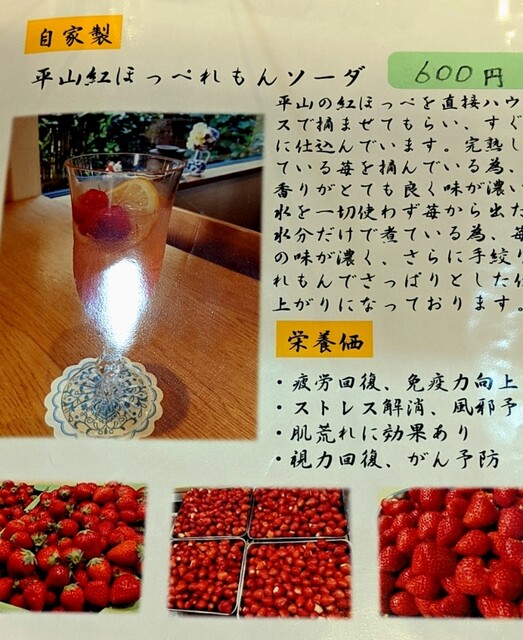 自家製
平山紅ほっぺれもんソーダ
600円
平山の紅ほっぺを直接ハウ
スで摘ませてもらい、すぐ
に仕込んでいます。完熟し
ている苺を摘んでいる為、
香りがとても良く味が濃い
水を一切使わず苺から出た
水分だけで煮ている為、苺
の味が濃く、さらに手絞り
れもんでさっぱりとした仕
上がりになっております。
栄養価
・疲労回復、免疫力向上
・ストレス解消、風邪予
・肌荒れに効果あり
・視力回復、がん予防